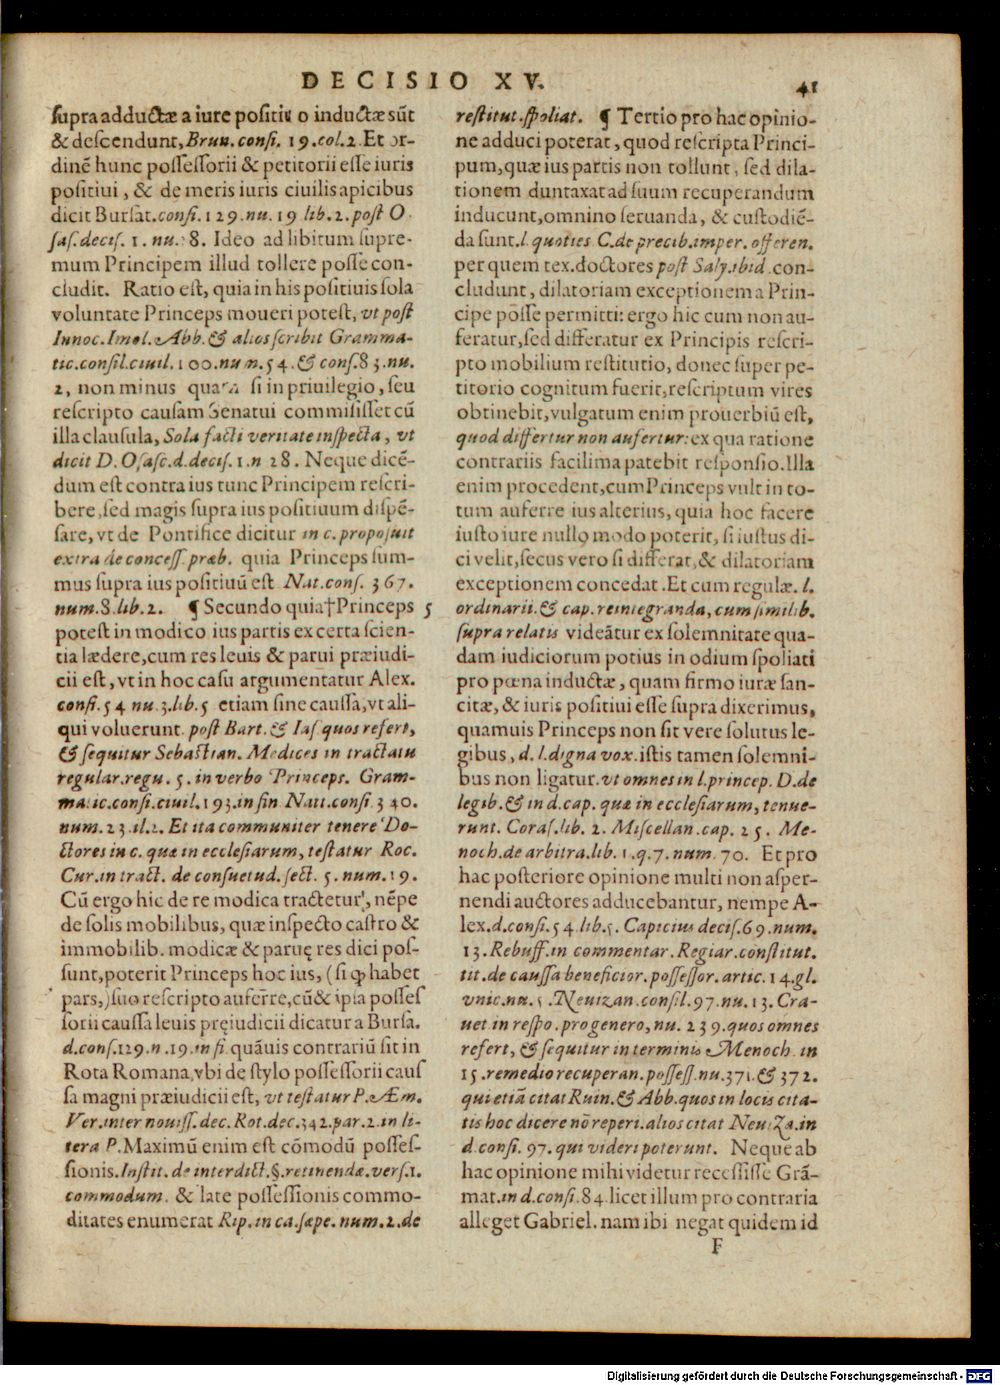 DECISIO XV.
41
supra adductæ a iure positiuo inductæ sūt
& descendunt, Brun. consi. 19. col. 2. Et or-
dinē hunc possessorii & petitorii esse iuris
positiui, & de meris iuris ciuilis apicibus
dicit Bursat. consi. 129. nu. 19 lib. 2. post O
sas. decis. 1. nu. 28. Ideo ad libitum supre-
mum Principem illud tollere posse con-
cludit. Ratio est, quia in his positiuis sola
voluntate Princeps moueri potest, vt post
Innoc. Imol. Abb. & alios scribit Gramma-
tic. consil. ciuil. 100. num. 54. & cons. 83. nu.
2, non minus quam si in priuilegio, seu
rescripto causam Senatui commisisset cū
illa clausula, Sola facti veritate inspecta, vt
dicit D. Osasc. d. decis. 1. n 28. Neque dicē-
dum est contra ius tunc Principem rescri-
bere, sed magis supra ius positiuum dispē-
sare, vt de Pontifice dicitur in c. proposuit
extra de concess. præb. quia Princeps sum-
mus supra ius positiuū est Nat. cons. 367.
num. 8. lib. 2. ¶ Secundo quia†Princeps 5
potest in modico ius partis ex certa scien-
tia lædere, cum res leuis & parui præiudi-
cii est, vt in hoc casu argumentatur Alex.
consi. 54 nu. 3. lib. 5 etiam sine caussa, vt ali-
qui voluerunt. post Bart. & Ias. quos refert,
& sequitur Sebastian. Medices in tractatu
regular. regu. 5. in verbo Princeps. Gram-
matic. consi. ciuil. 193. in fin Natt. consi. 340.
num. 23. il. 2. Et ita communiter tenere Do-
ctores in c. quæ in ecclesiarum, testatur Roc.
Cur. in tract. de consuetud. sect. 5. num. 19.
Cū ergo hic de re modica tractetur, nēpe
de solis mobilibus, quæ inspecto castro &
immobilib. modicæ & paruę res dici pos-
sunt, poterit Princeps hoc ius, (si qđ habet
pars,) suo rescripto auferre, cū & ipsa posses
sorii caussa leuis pręiudicii dicatur a Bursa.
d. cons. 129. n. 19. in fi. quāuis contrariū sit in
Rota Romana, vbi de stylo possessorii caus
sa magni præiudicii est, vt testatur P. Æm.
Ver. inter nouiss. dec. Rot. dec. 342. par. 2. in li-
tera P. Maximū enim est cōmodū posses-
sionis. Instit. de interdict. §. retinendæ. vers. 1.
commodum. & late possessionis commo-
ditates enumerat Rip. in ca. sæpe. num. 2. de
restitut. spoliat. ¶ Tertio pro hac opinio-
ne adduci poterat, quod rescripta Princi-
pum, quæ ius partis non tollunt, sed dila-
tionem duntaxat ad suum recuperandum
inducunt, omnino seruanda, & custodiē-
da sunt. l. quoties C. de precib. imper. offeren.
per quem tex. doctores post Saly. ibid. con-
cludunt, dilatoriam exceptionem a Prin-
cipe posse permitti: ergo hic cum non au-
feratur, sed differatur ex Principis rescri-
pto mobilium restitutio, donec super pe-
titorio cognitum fuerit, rescriptum vires
obtinebit, vulgatum enim prouerbiū est,
quod differtur non aufertur: ex qua ratione
contrariis facilima patebit responsio. Illa
enim procedent, cum Princeps vult in to-
tum auferre ius alterius, quia hoc facere
iusto iure nullo modo poterit, si iustus di-
ci velit, secus vero si differat, & dilatoriam
exceptionem concedat. Et cum regulæ. l.
ordinarii. & cap. reintegranda, cum similib.
supra relatis videātur ex solemnitate qua-
dam iudiciorum potius in odium spoliati
pro pœna inductæ, quam firmo iuræ san-
citæ, & iuris positiui esse supra dixerimus,
quamuis Princeps non sit vere solutus le-
gibus, d. l. digna vox. istis tamen solemni-
bus non ligatur. vt omnes in l. princep. D. de
legib. & in d. cap. quæ in ecclesiarum, tenue-
runt. Coras. lib. 2. Miscellan. cap. 25. Me-
noch. de arbitra. lib. 1. q. 7. num. 70. Et pro
hac posteriore opinione multi non asper-
nendi auctores adducebantur, nempe A-
lex. d. consi. 54. lib. 5. Capicius decis. 69. num.
13. Rebuff. in commentar. Regiar. constitut.
tit. de caussa beneficior. possessor. artic. 14. gl.
vnic. nu. 5. Neuizan. consil. 97. nu. 13. Cra-
uet in respo. pro genero, nu. 239. quos omnes
refert, & sequitur in terminis Menoch. in
15. remedio recuperan. possess. nu. 371. & 372.
qui etiā citat Ruin. & Abb. quos in locis cita-
tis hoc dicere nō reperi. alios citat Neuiza. in
d. consi. 97. qui videri poterunt. Neque ab
hac opinione mihi videtur recessisse Grā-
mat. in d. consi. 84. licet illum pro contraria
alleget Gabriel. nam ibi negat quidem id
F
Digitalisierung gefördert durch die Deutsche Forschungsgemeinschaft - DFG